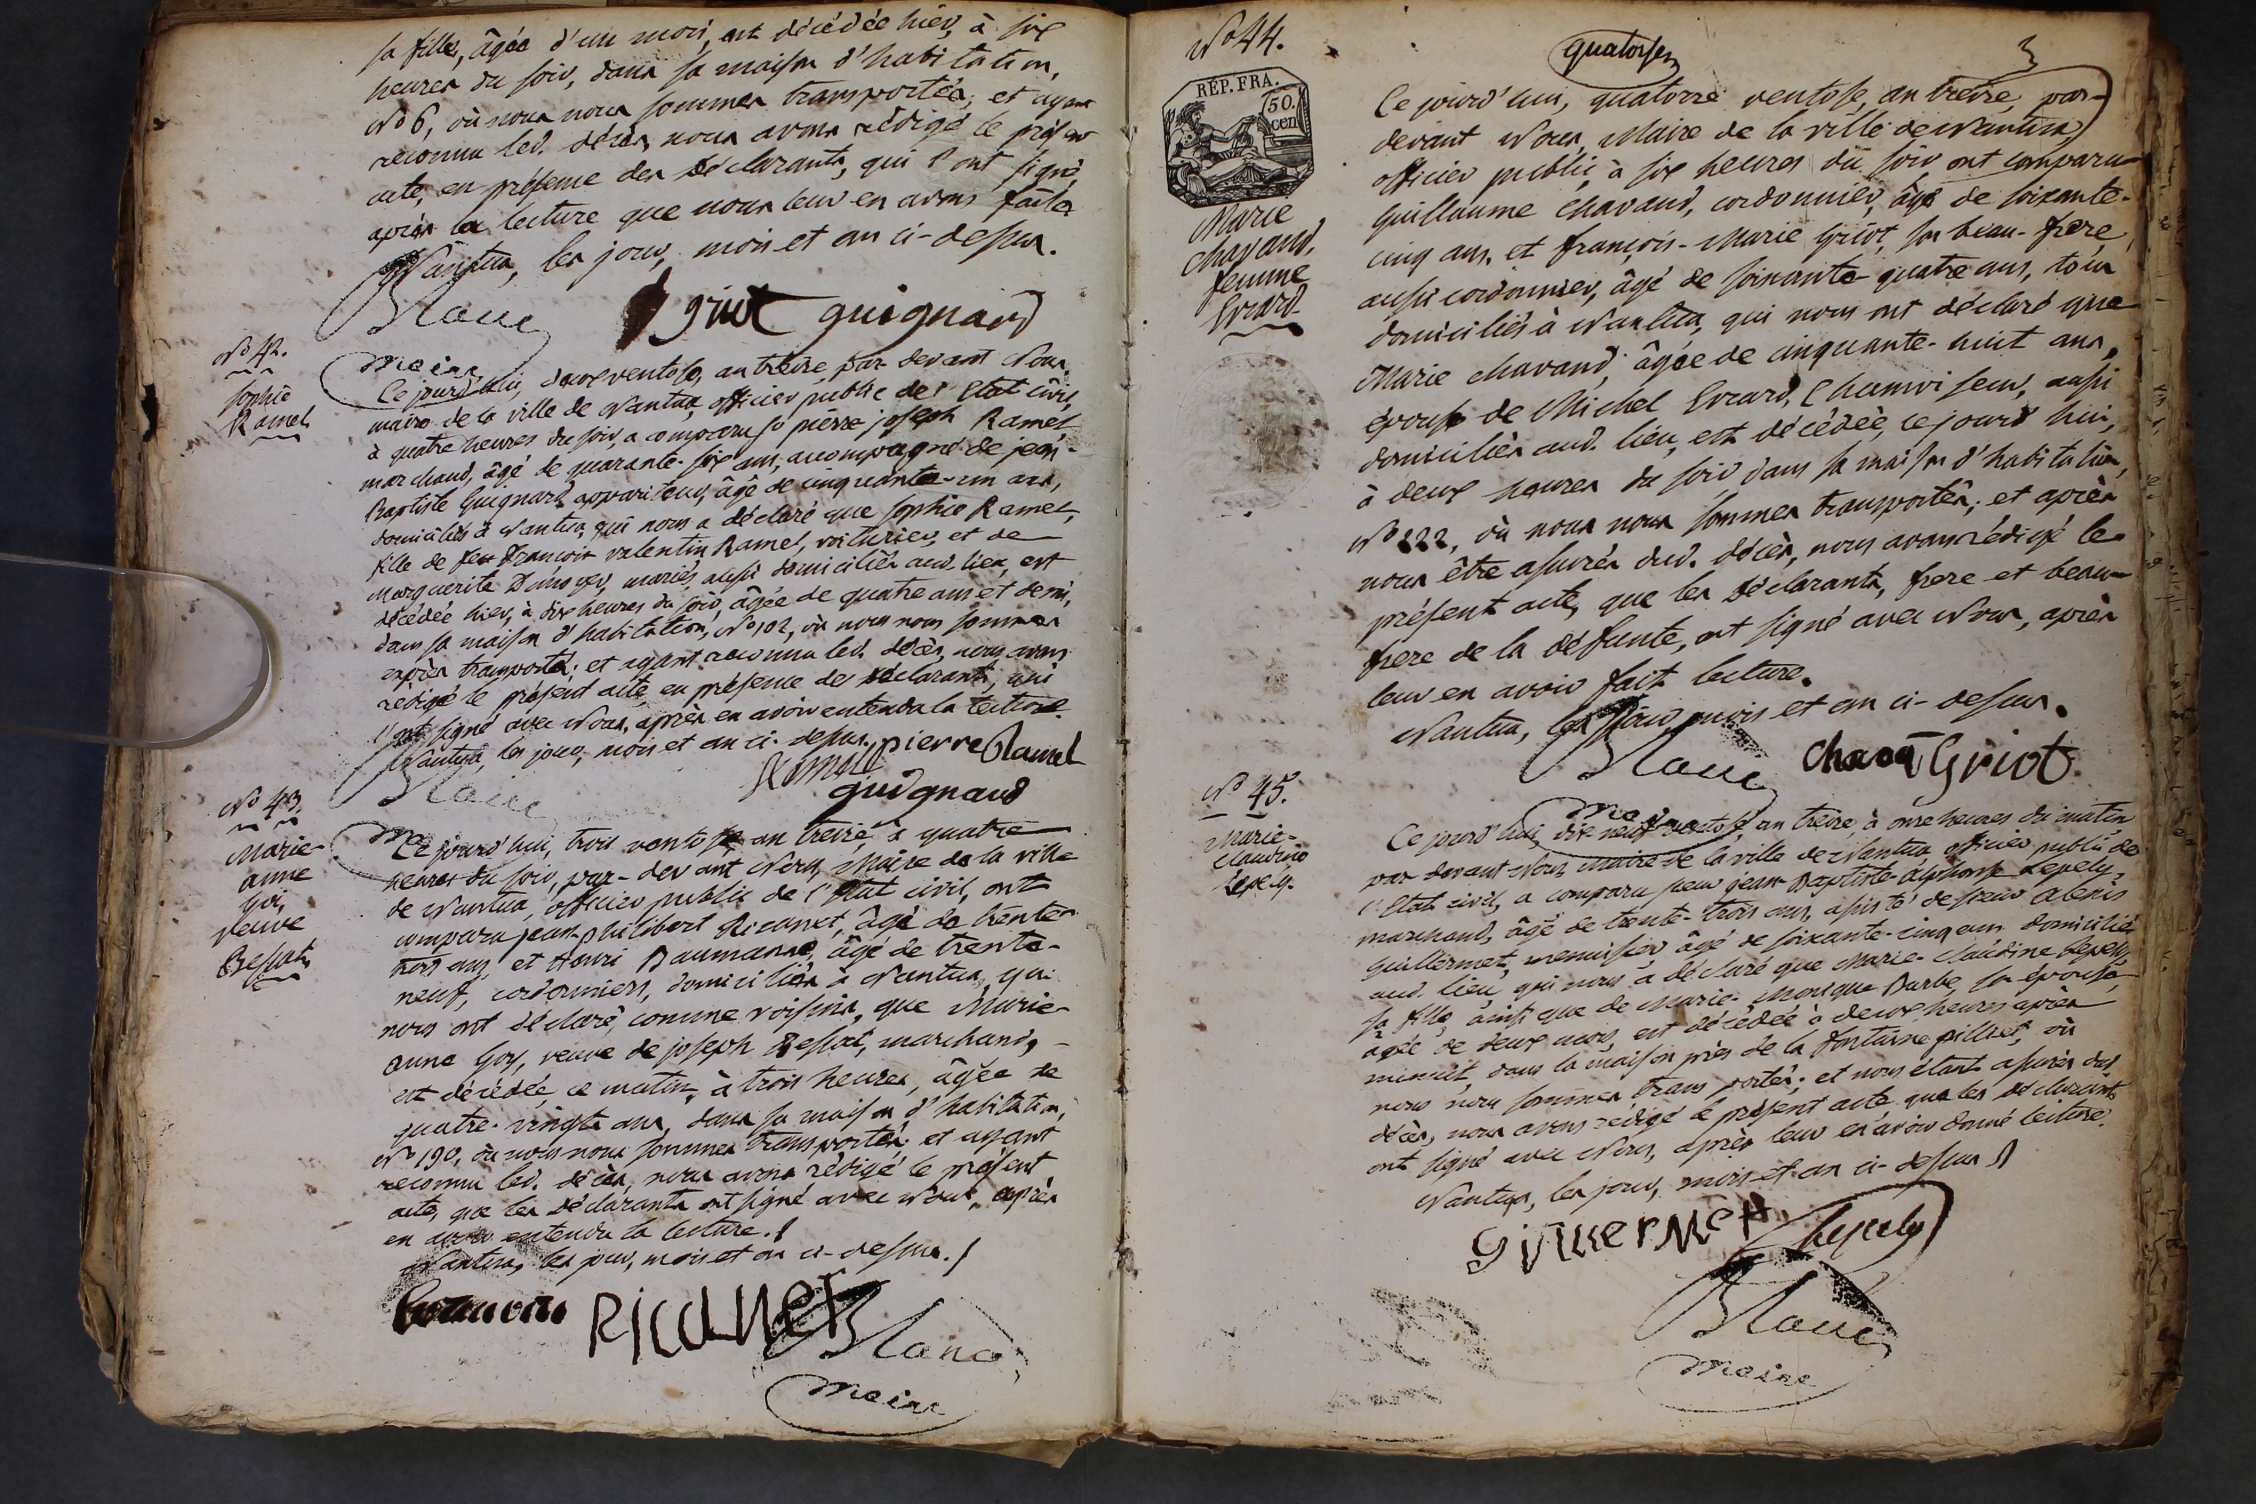 sa fille, âgée d'un mois, est décédée hier, à six
heures du soir, dans sa maison d'habitation,
No 6, où nous nous sommes transportés; et ayant
reconnu led. décès, nous avons rédigé le présent
acte, en présence des déclarants, qui l'ont signé
après la lecture que nous leur en avons faite.
Nantua, les jour, mois et an ci-dessus.
Blanc griot guignard
maire
No 42.
Sophie
Ramel
Ce jourd'hui, deux ventose, an treize, par devant Nous,
maire de la ville de Nantua, officier public de l'Etat civil,
à quatre heures du soir, a comparu sr pierre joseph Ramel
marchand, âgé de quarante-six ans, accompagné de jean-
Baptiste Guignard appariteur, âgé de cinquante-un ans,
domiciliés à Nantua, qui nous a déclaré que sophie Ramel,
fille de feu François valentin Ramel, voiturier, et de
Marguerite Dunoyer, mariés, aussi domiciliés aud. lieu, est
décédée hier, à dix heures du soir, âgée de quatre ans et demi,
dans sa maison d'habitation, No 102, où nous nous sommes
exprès transporté; et ayant reconnu led. décès, nous avons
rédigé le présent acte, en présence des déclarants, qui
l'ont signé avec Nous, après en avoir entendu la lecture.
Nantua, les jour, mois et an ci-dessus. pierre Ramel
Blanc guignard
maire
No 43.
Marie-
anne
goy,
veuve
Bessat
Ce jourd'hui, trois ventose, an treize, à quatre
heures du soir, par-devant Nous, Maire de la ville
de Nantua, officier public de l'Etat civil, ont
comparu jean-philibert Ricanet, âgé de trente-
trois ans, et Henri Baumann, âgé de trente-
neuf, cordonniers, domiciliés à Nantua, qui
nous ont déclaré, comme voisins, que Marie-
anne Goy, veuve de joseph Bessat, marchand,
est décédée, ce matin, à trois heures, âgée de
quatre-vingts ans, dans sa maison d'habitation,
No 190, où nous nous sommes transportés; et ayant
reconnu led. décès, nous avons rédigé le présent
acte, que les déclarants ont signé avec Nous, après
en avoir entendu la lecture.
Nantua, les jour, mois et an ci-dessus.
Ricanet Blanc
maire
quatorze
No 44.
RÉP. FRA.
50.
cen
Marie
Chavand,
femme
Evrard
Ce jourd'hui, quatorze ventose, an treize, par-
devant Nous, Maire de la ville de Nantua,
officier public, à six heures du soir, ont comparu
Guillaume Chavand, cordonnier, âgé de soixante-
cinq ans, et françois-Marie Griot, son beau-frere,
aussi cordonnier, âgé de soixante-quatre ans, tous
domiciliés à Nantua, qui nous ont déclaré que
Marie Chavand, âgée de cinquante-huit ans,
épouse de Michel Evrard, Chamoiseur, aussi
domiciliés aud. lieu, est décédée, ce jourd'hui,
à deux heures du soir, dans sa maison d'habitation,
No 222, où nous nous sommes transportés; et après
nous être assurés dud. décès, nous avons rédigé le
présent acte, que les déclarants, frere et beau-
frere de la défunte, ont signé avec Nous, après
leur en avoir fait lecture.
Nantua, les jour, mois et an ci-dessus.
Blanc Griot
maire
No 45.
Marie-
Claudine
Lepely.
Ce jourd'hui, dix neuf ventose, an treize, à onze heures du matin
par devant Nous maire de la ville de Nantua officier public de
l'Etat civil, a comparu sieur jean Baptiste alphonse Lepely,
marchand, âgé de trente-trois ans, assisté de sieur alexis
Guillermet, menuisier âgé de soixante-cinq ans domiciliés
aud. lieu, qui nous a déclaré que Marie-Claudine Lepely,
sa fille, ainsi que de Marie-Monique Barbe, son épouse,
âgée de deux mois, est décédée à deux heures après
minuit, dans la maison près de la fontaine pillet, où
nous nous sommes transportés; et nous étant assurés dud.
décès, nous avons rédigé le présent acte que les déclarants
ont signé avec Nous, après leur en avoir donné lecture.
Nantua, les jour, mois et an ci-dessus
guillermet Lepely
Blanc
maire